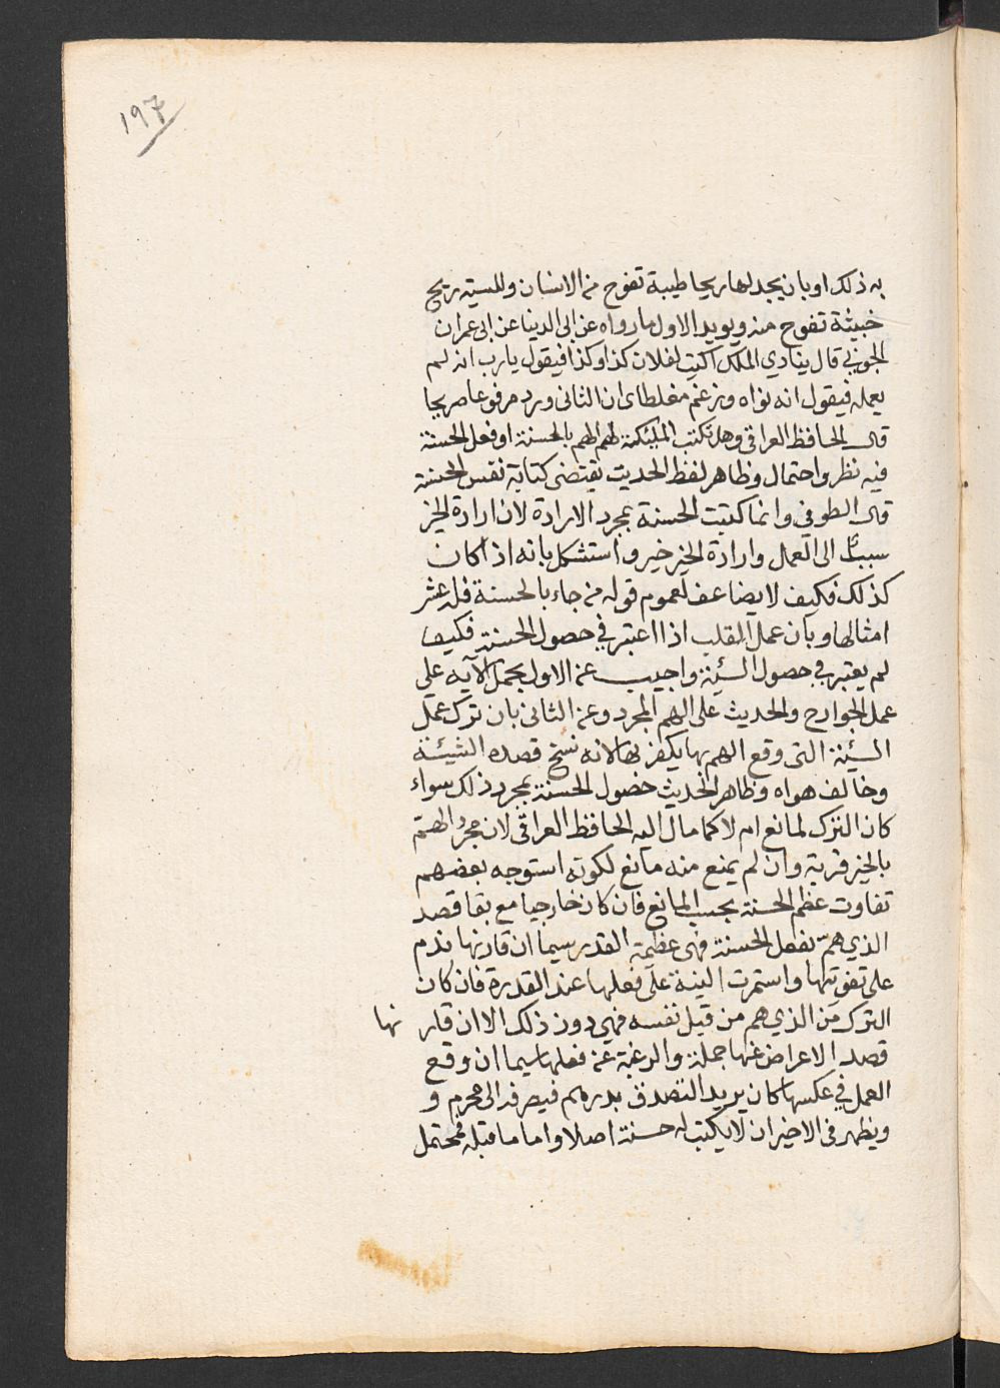 ١٩٧
به ذلك او بان يجد لها ريحا طيبة تفوح من الانسان وللسيئة ريح
خبيثة تفوح منه ويويد الاول ما رواه عن ابى الدنيا عن ابى عمران
الجونى قال ينادي الملك اكتب لفلان كذا وكذا فيقول يارب انه لم
يعمله فيقول انه نواه وزعم مغلطاى ان الثانى ورد مرفوعا صريحا
قال الحافظ العراقى وهل تكتب الملئكة لهم الهم بالحسنة او فعل الحسنة
فيه نظر واحتمال وظاهر لفظ الحديث يقتضى كتابة نفس الحسنة
قال الطوفي وانما كتبت الحسنة بمجرد الارادة لان ارادة الخير
سبب الى العمل وارادة الخير خير واستشكل بانه اذا كان
كذلك فكيف لا يضاعف لعموم قوله من جاء بالحسنة فله عشر
امثالها وبان عمل القلب اذا اعتبر في حصول الحسنة فكيف
لم يعتبر في حصول السيئة واجيب عن الاول بحمل الآية على
عمل الجوارح والحديث على الهم المجرد وعن الثانى بان ترك عمل
السيئة التى وقع الهم بها يكفرها لانه نسخ قصده الشيئة
وخالف هواه وظاهر الحديث حصول الحسنة بمجرد ذلك سواء
كان الترك لمانع ام لا كما مال اليه الحافظ العراقى لان مجرد الهم
بالخير قربة وان لم يمنع منه مانع لكونه استوجه بعضهم
تفاوت عظم الحسنة بحسب المانع فان كان خارجيا مع بقا قصد
الذي هم بفعل الحسنة فهى عظيمة القدر سيما ان قارنها ندم
على تفويتها واستمرت النية على فعلها عند القدرة فان كان
الترك من الذي هم من قبل نفسه فهي دون ذلك الا ان قار نها
قصد الاعراض عنها جملة والرغبة عن فعلها سيما ان وقع
العمل في عكسها كان يريد التصدق بدرهم فيصرفه الى محرم و
ويظهر فى الاخير ان لا يكتب له حسنة اصلا واما ما قبله فمحتمل